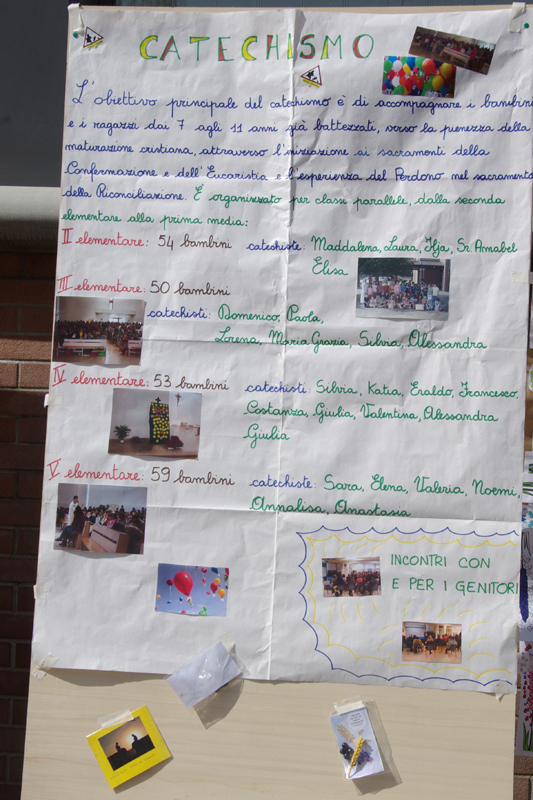 CATECHISMO
L'obiettivo principale del catechismo è di accompagnare i bambini
e i ragazzi dai 7 agli 11 anni già battezzati, verso la pienezza della
maturazione cristiana, attraverso l'iniziazione ai sacramenti della
Confermazione e dell'Eucaristia e l'esperienza del Perdono nel sacramento
della Riconciliazione. È organizzato per classi parallele, dalla seconda
elementare alla prima media:
II elementare: 54 bambini catechiste: Maddalena, Laura, Ilja, Sr. Annabel
Elisa
III elementare: 50 bambini
catechisti: Domenico, Paola,
Lorena, Maria Grazia, Silvia, Alessandra
IV elementare: 53 bambini catechisti: Silvia, Katia, Eraldo, Francesco,
Costanza, Giulia, Valentina, Alessandra
Giulia
V elementare: 59 bambini catechiste: Sara, Elena, Valeria, Noemi,
Annalisa, Anastasia
INCONTRI CON
E PER I GENITORI